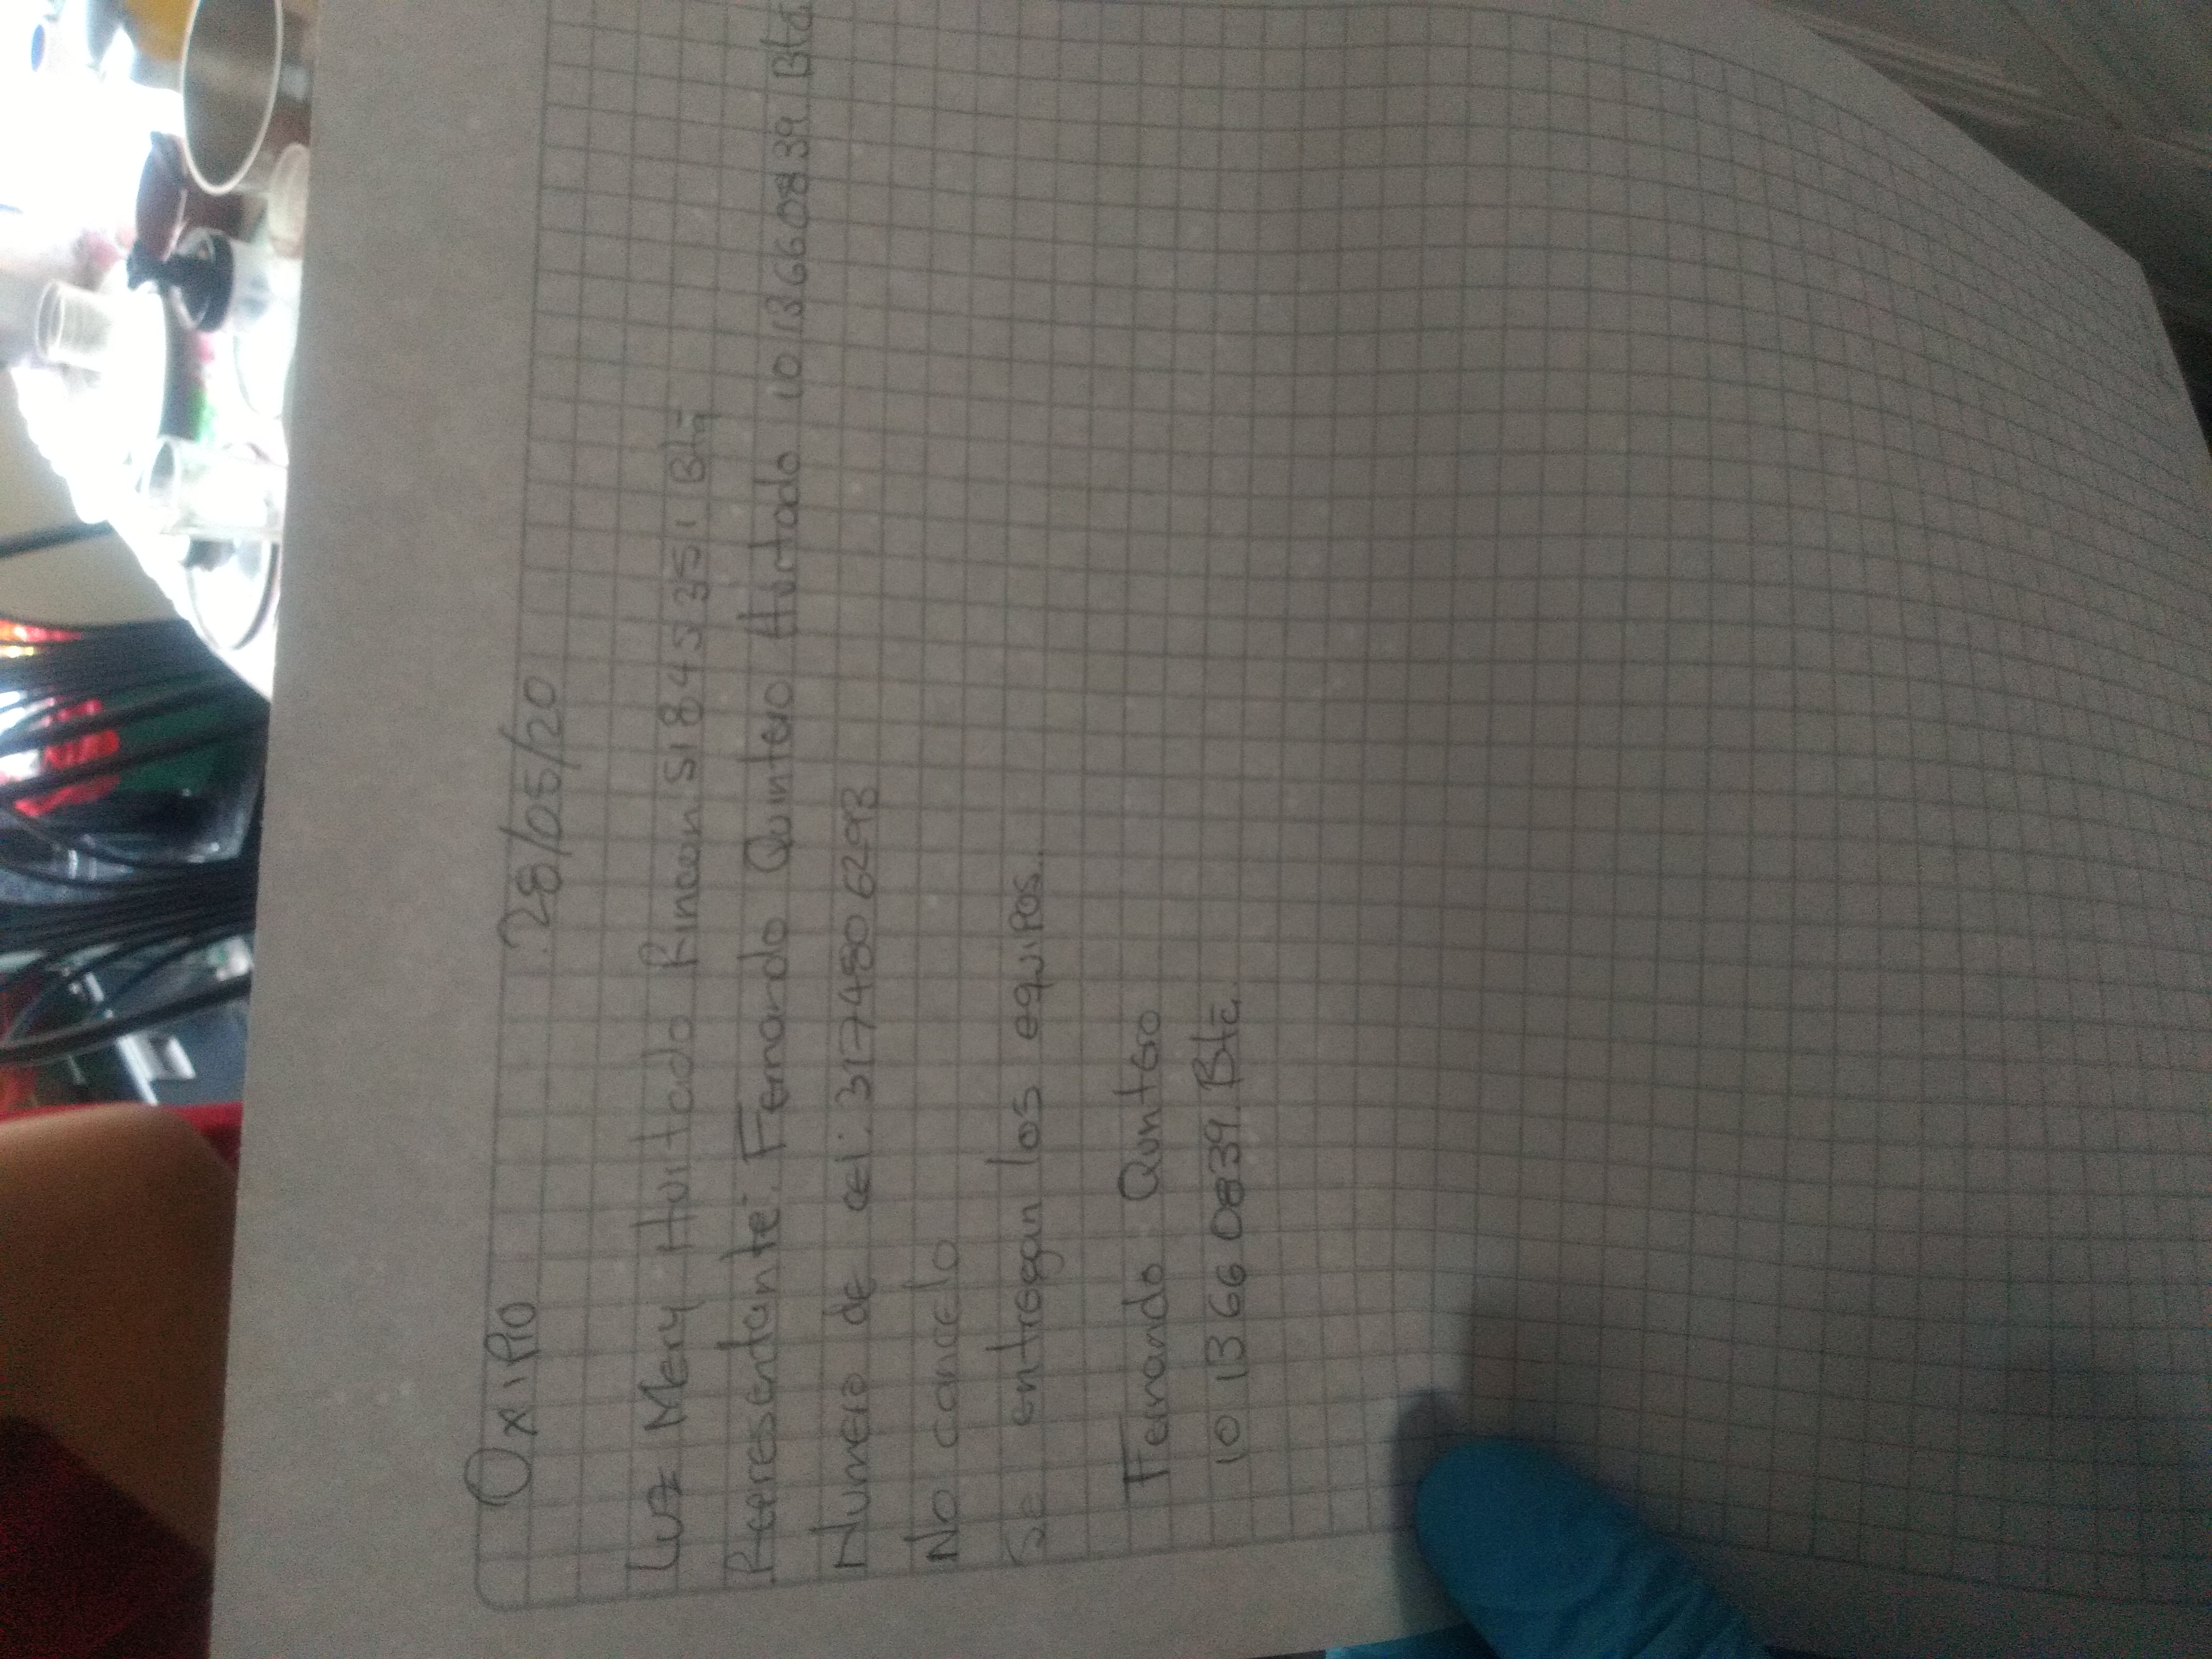 OxiPro 28/05/20
Luz Mery Hurtado Rincon 51845351 Bta
Representante: Fernando Quintero Hurtado 1013660839. Bta
Numero de cel: 3174806293
No cancelo
Se entregan los equipos.
Fernando Quntero
1013660839. Bta.